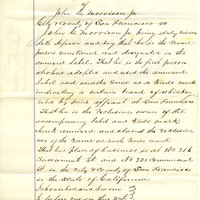 John M. Morrison Jr.
City & County of San Francisco ss
John M. Morrison Jr. being duly sworn
doth depose and say that he is the same
person mentioned and designated in the
annexed label. That he is the first person
who has adopted and used the annexed
label and used the same as a Trade mark
indicating a certain brand of whiskey
sold by said affiant at San Francisco
That he is the exclusive owner of the
accompanying label and Trade mark
which annexed and claims the exclusive
use of the same as such Trade mark
That his place of business is at No. 316
Sacramento St and No 321 Commercial
St in the City & County of San Francisco
in the State of California
Subscribed and sworn
before me on this